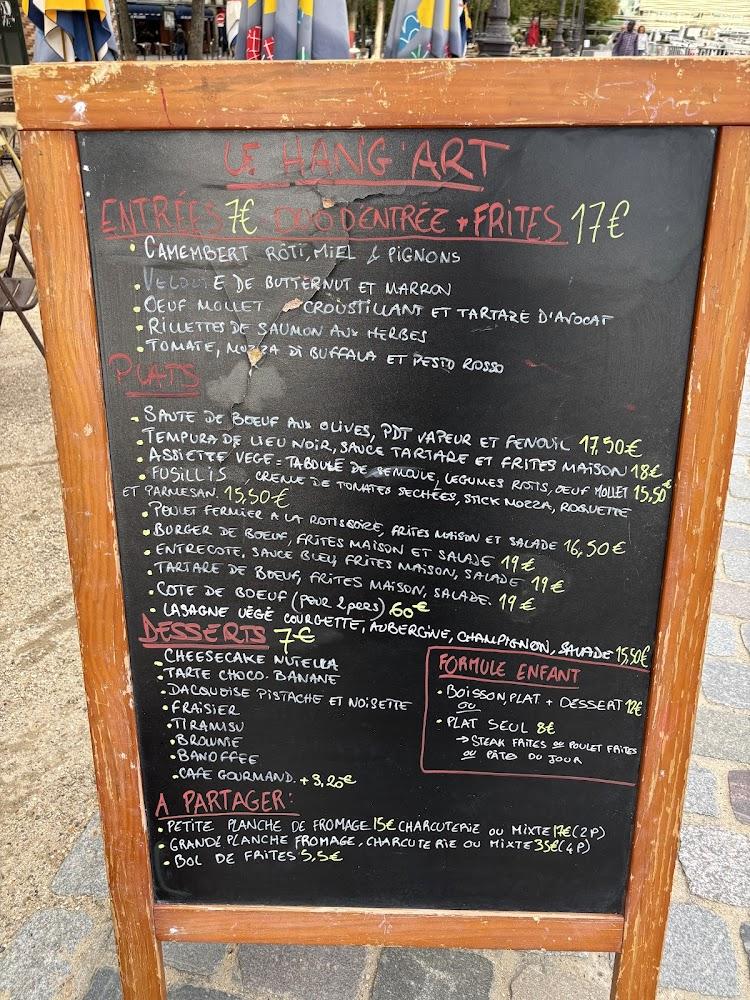 LE HANG'ART
ENTRÉES 7€ DUO D'ENTRÉE + FRITES 17€
• CAMEMBERT RÔTI, MIEL & PIGNONS
• VELOUTE DE BUTTERNUT ET MARRON
• OEUF MOLLET CROUSTILLANT ET TARTARE D'AVOCAT
• RILLETTES DE SAUMON AUX HERBES
• TOMATE, MOZZA DI BUFFALA ET PESTO ROSSO
PLATS
• SAUTE DE BOEUF AUX OLIVES, PDT VAPEUR ET FENOUIL 17,50€
• TEMPURA DE LIEU NOIR, SAUCE TARTARE ET FRITES MAISON 18€
• ASSIETTE VEGE : TABOULE DE SEMOULE, LEGUMES ROTIS, OEUF MOLLET 15,50€
• FUSILLIS, CREME DE TOMATES SECHÉES, STICK MOZZA, ROQUETTE
ET PARMESAN. 15,50€
• POULET FERMIER A LA ROTISSOIRE, FRITES MAISON ET SALADE 16,50€
• BURGER DE BOEUF, FRITES MAISON ET SALADE 19€
• ENTRECOTE, SAUCE BLEU, FRITES MAISON, SALADE 19€
• TARTARE DE BOEUF, FRITES MAISON, SALADE. 19€
• COTE DE BOEUF (pour 2 pers) 60€
• LASAGNE VÉGÉ COURGETTE, AUBERGINE, CHAMPIGNON, SALADE 15,50€
DESSERTS 7€
• CHEESECAKE NUTELLA
• TARTE CHOCO. BANANE
• DACQUOISE PISTACHE ET NOISETTE
• FRAISIER
• TIRAMISU
• BROWNIE
• BANOFFEE
• CAFE GOURMAND. + 3,20€
FORMULE ENFANT
• BOISSON, PLAT + DESSERT 12€
OU
• PLAT SEUL 8€
→ STEAK FRITES OU POULET FRITES
OU PÂTES DU JOUR
A PARTAGER :
• PETITE PLANCHE DE FROMAGE 15€ CHARCUTERIE OU MIXTE 17€ (2P)
• GRANDE PLANCHE FROMAGE, CHARCUTERIE OU MIXTE 35€ (4P)
• BOL DE FRITES 5,5€